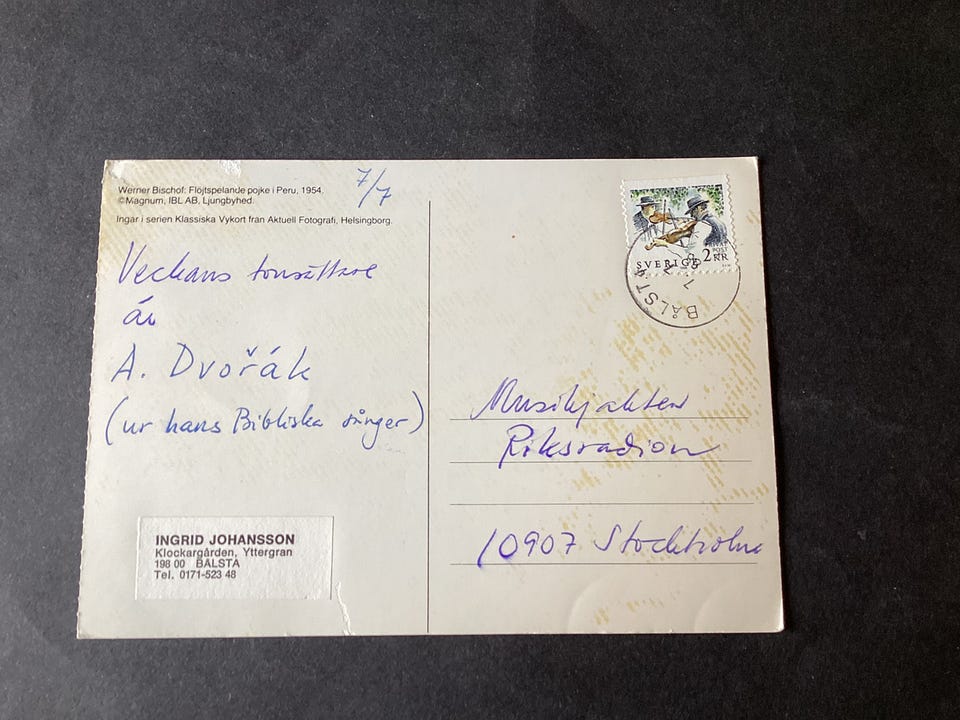 Werner Bischof: Flöjtspelande pojke i Peru, 1954.
©Magnum, IBL AB, Ljungbyhed.
Ingar i serien Klassiska Vykort från Aktuell Fotografi, Helsingborg.
7/7
Veckans tonsättare
är
A. Dvořák
(ur hans Bibliska sånger)
INGRID JOHANSSON
Klockargården, Yttergran
198 00 BÅLSTA
Tel. 0171-523 48
SVERIGE 2 KR
POST
BÅLSTA
Musikjakten
Riksradion
10907 Stockholm